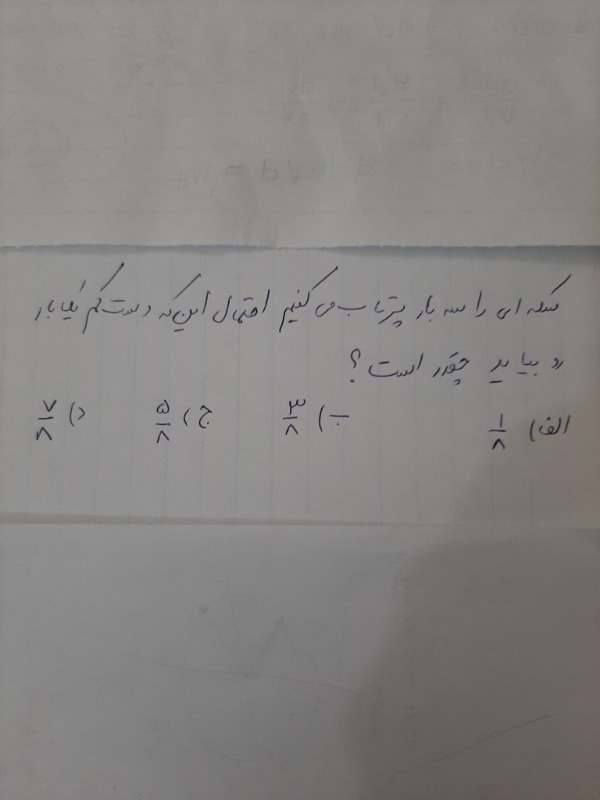 سکه ای را سه بار پرتاب می کنیم احتمال این که دست کم یکبار
رو بیاید چقدر است؟
الف) ۱/۸ ب) ۳/۸ ج) ۵/۸ د) ۷/۸